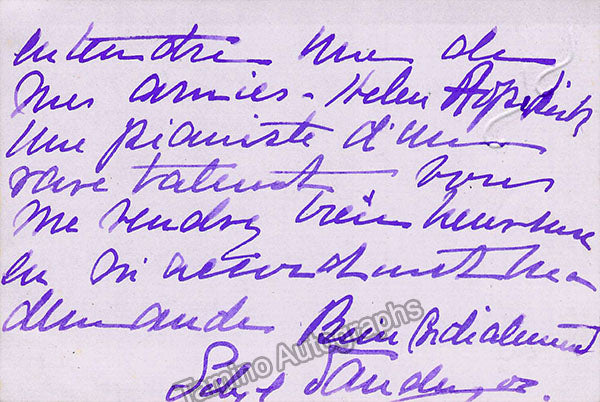 entendre une de
mes amies - Helen Hopekirk
une pianiste d'un
rare talent vous
me rendrez bien heureuse
en m'accordant ma
demande Bien Cordialement
Sibyl Sanderson.
Tamino Autographs